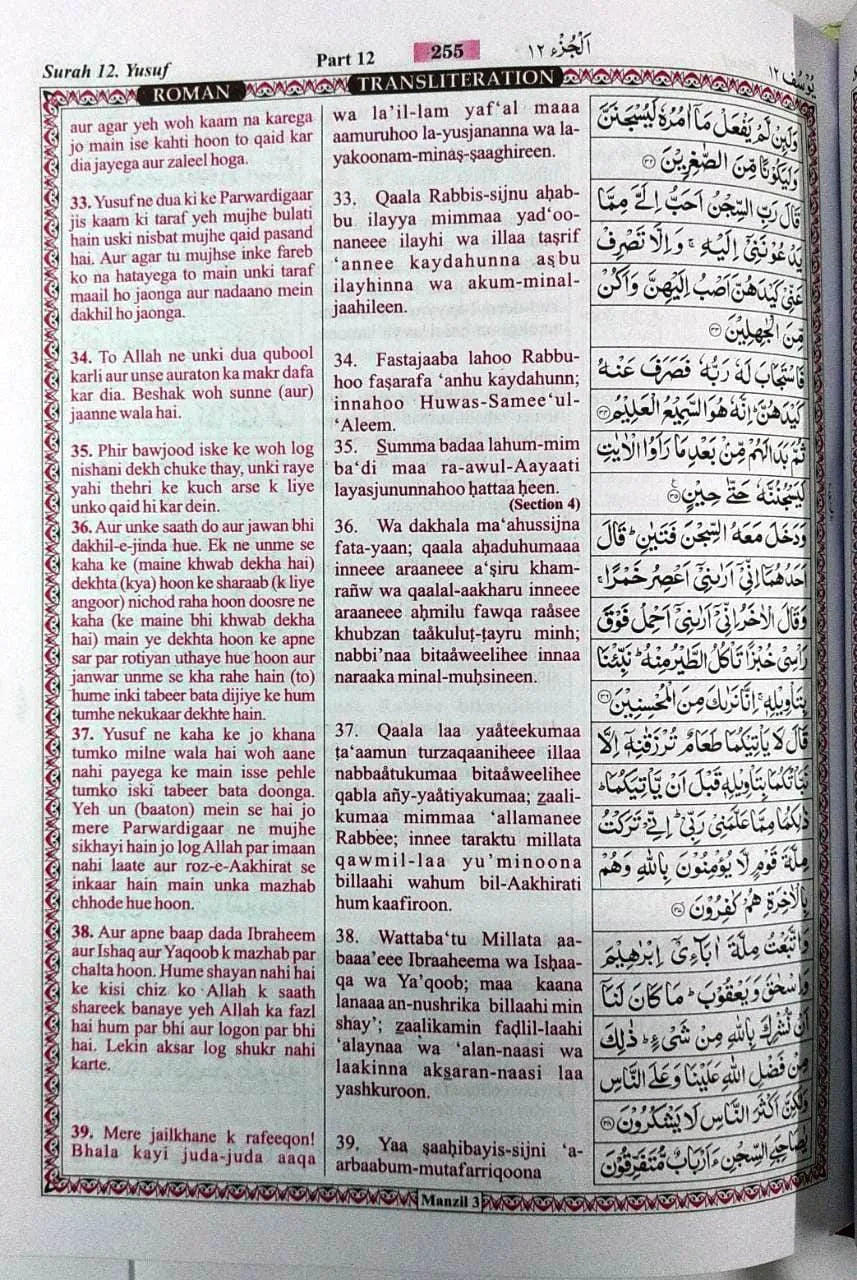 Surah 12. Yusuf
Part 12
255
اَلْجُزْء ١٢
يُوْسُف ١٢
ROMAN
TRANSLITERATION
aur agar yeh woh kaam na karega
jo main ise kahti hoon to qaid kar
dia jayega aur zaleel hoga.
33. Yusuf ne dua ki ke Parwardigaar
jis kaam ki taraf yeh mujhe bulati
hain uski nisbat mujhe qaid pasand
hai. Aur agar tu mujhse inke fareb
ko na hatayega to main unki taraf
maail ho jaonga aur nadaano mein
dakhil ho jaonga.
34. To Allah ne unki dua qubool
karli aur unse auraton ka makr dafa
kar dia. Beshak woh sunne (aur)
jaanne wala hai.
35. Phir bawjood iske ke woh log
nishani dekh chuke thay, unki raye
yahi thehri ke kuch arse k liye
unko qaid hi kar dein.
36. Aur unke saath do aur jawan bhi
dakhil-e-jinda hue. Ek ne unme se
kaha ke (maine khwab dekha hai)
dekhta (kya) hoon ke sharaab (k liye
angoor) nichod raha hoon doosre ne
kaha (ke maine bhi khwab dekha
hai) main ye dekhta hoon ke apne
sar par rotiyan uthaye hue hoon aur
janwar unme se kha rahe hain (to)
hume inki tabeer bata dijiye ke hum
tumhe nekukaar dekhte hain.
37. Yusuf ne kaha ke jo khana
tumko milne wala hai woh aane
nahi payega ke main isse pehle
tumko iski tabeer bata doonga.
Yeh un (baaton) mein se hai jo
mere Parwardigaar ne mujhe
sikhayi hain jo log Allah par imaan
nahi laate aur roz-e-Aakhirat se
inkaar hain main unka mazhab
chhode hue hoon.
38. Aur apne baap dada Ibraheem
aur Ishaq aur Yaqoob k mazhab par
chalta hoon. Hume shayan nahi hai
ke kisi chiz ko Allah k saath
shareek banaye yeh Allah ka fazl
hai hum par bhi aur logon par bhi
hai. Lekin aksar log shukr nahi
karte.
39. Mere jailkhane k rafeeqon!
Bhala kayi juda-juda aaqa
wa la’il-lam yaf‘al maaa
aamuruhoo la-yusjananna wa la-
yakoonam-minaṣ-ṣaaghireen.
33. Qaala Rabbis-sijnu aḥab-
bu ilayya mimmaa yad‘oo-
naneee ilayhi wa illaa taṣrif
‘annee kaydahunna aṣbu
ilayhinna wa akum-minal-
jaahileen.
34. Fastajaaba lahoo Rabbu-
hoo faṣarafa ‘anhu kaydahunn;
innahoo Huwas-Samee‘ul-
‘Aleem.
35. Summa badaa lahum-mim
ba‘di maa ra-awul-Aayaati
layasjununnahoo ḥattaa ḥeen.
(Section 4)
36. Wa dakhala ma‘ahussijna
fata-yaan; qaala aḥaduhumaaa
inneee araaneee a‘ṣiru kham-
rañw wa qaalal-aakharu inneee
araaneee aḥmilu fawqa raåsee
khubzan taåkuluṭ-ṭayru minh;
nabbi’naa bitaåweelihee innaa
naraaka minal-muḥsineen.
37. Qaala laa yaåteekumaa
ṭa‘aamun turzaqaaniheee illaa
nabbaåtukumaa bitaåweelihee
qabla añy-yaåtiyakumaa; zaali-
kumaa mimmaa ‘allamanee
Rabbee; innee taraktu millata
qawmil-laa yu’minoona
billaahi wahum bil-Aakhirati
hum kaafiroon.
38. Wattaba‘tu Millata aa-
baaa’eee Ibraaheema wa Isḥaa-
qa wa Ya‘qoob; maa kaana
lanaaa an-nushrika billaahi min
shay’; zaalikamin faḍlil-laahi
‘alaynaa wa ‘alan-naasi wa
laakinna aksaran-naasi laa
yashkuroon.
39. Yaa ṣaaḥibayis-sijni ‘a-
arbaabum-mutafarriqoona
وَلَىِٕنْ لَّمْ يَفْعَلْ مَاۤ اٰمُرُهٗ لَيُسْجَنَنَّ
وَلَيَكُوْنًا مِّنَ الصّٰغِرِيْنَ ﴿٣٢﴾
قَالَ رَبِّ السِّجْنُ اَحَبُّ اِلَيَّ مِمَّا
يَدْعُوْنَنِيْۤ اِلَيْهِ ۚ وَاِلَّا تَصْرِفْ
عَنِّيْ كَيْدَهُنَّ اَصْبُ اِلَيْهِنَّ وَاَكُنْ
مِّنَ الْجٰهِلِيْنَ ﴿٣٣﴾
فَاسْتَجَابَ لَهٗ رَبُّهٗ فَصَرَفَ عَنْهُ
كَيْدَهُنَّ ؕ اِنَّهٗ هُوَ السَّمِيْعُ الْعَلِيْمُ ﴿٣٤﴾
ثُمَّ بَدَا لَهُمْ مِّنْۢ بَعْدِ مَا رَاَوُا الْاٰيٰتِ
لَيَسْجُنُنَّهٗ حَتّٰى حِيْنٍ ﴿٣٥﴾
وَدَخَلَ مَعَهُ السِّجْنَ فَتَيٰنِ ؕ قَالَ
اَحَدُهُمَاۤ اِنِّيْۤ اَرٰىنِيْۤ اَعْصِرُ خَمْرًا ۚ
وَقَالَ الْاٰخَرُ اِنِّيْۤ اَرٰىنِيْۤ اَحْمِلُ فَوْقَ
رَاْسِيْ خُبْزًا تَاْكُلُ الطَّيْرُ مِنْهُ ؕ نَبِّئْنَا
بِتَاْوِيْلِهٖ ۚ اِنَّا نَرٰىكَ مِنَ الْمُحْسِنِيْنَ ﴿٣٦﴾
قَالَ لَا يَاْتِيْكُمَا طَعَامٌ تُرْزَقٰنِهٖۤ اِلَّا
نَبَّاْتُكُمَا بِتَاْوِيْلِهٖ قَبْلَ اَنْ يَّاْتِيَكُمَا ؕ
ذٰلِكُمَا مِمَّا عَلَّمَنِيْ رَبِّيْ ؕ اِنِّيْ تَرَكْتُ
مِلَّةَ قَوْمٍ لَّا يُؤْمِنُوْنَ بِاللّٰهِ وَهُمْ
بِالْاٰخِرَةِ هُمْ كٰفِرُوْنَ ﴿٣٧﴾
وَاتَّبَعْتُ مِلَّةَ اٰبَآءِيْۤ اِبْرٰهِيْمَ
وَاِسْحٰقَ وَيَعْقُوْبَ ؕ مَا كَانَ لَنَاۤ
اَنْ نُّشْرِكَ بِاللّٰهِ مِنْ شَيْءٍ ؕ ذٰلِكَ
مِنْ فَضْلِ اللّٰهِ عَلَيْنَا وَعَلَى النَّاسِ
وَلٰكِنَّ اَكْثَرَ النَّاسِ لَا يَشْكُرُوْنَ ﴿٣٨﴾
يٰصَاحِبَيِ السِّجْنِ ءَاَرْبَابٌ مُّتَفَرِّقُوْنَ
Manzil 3